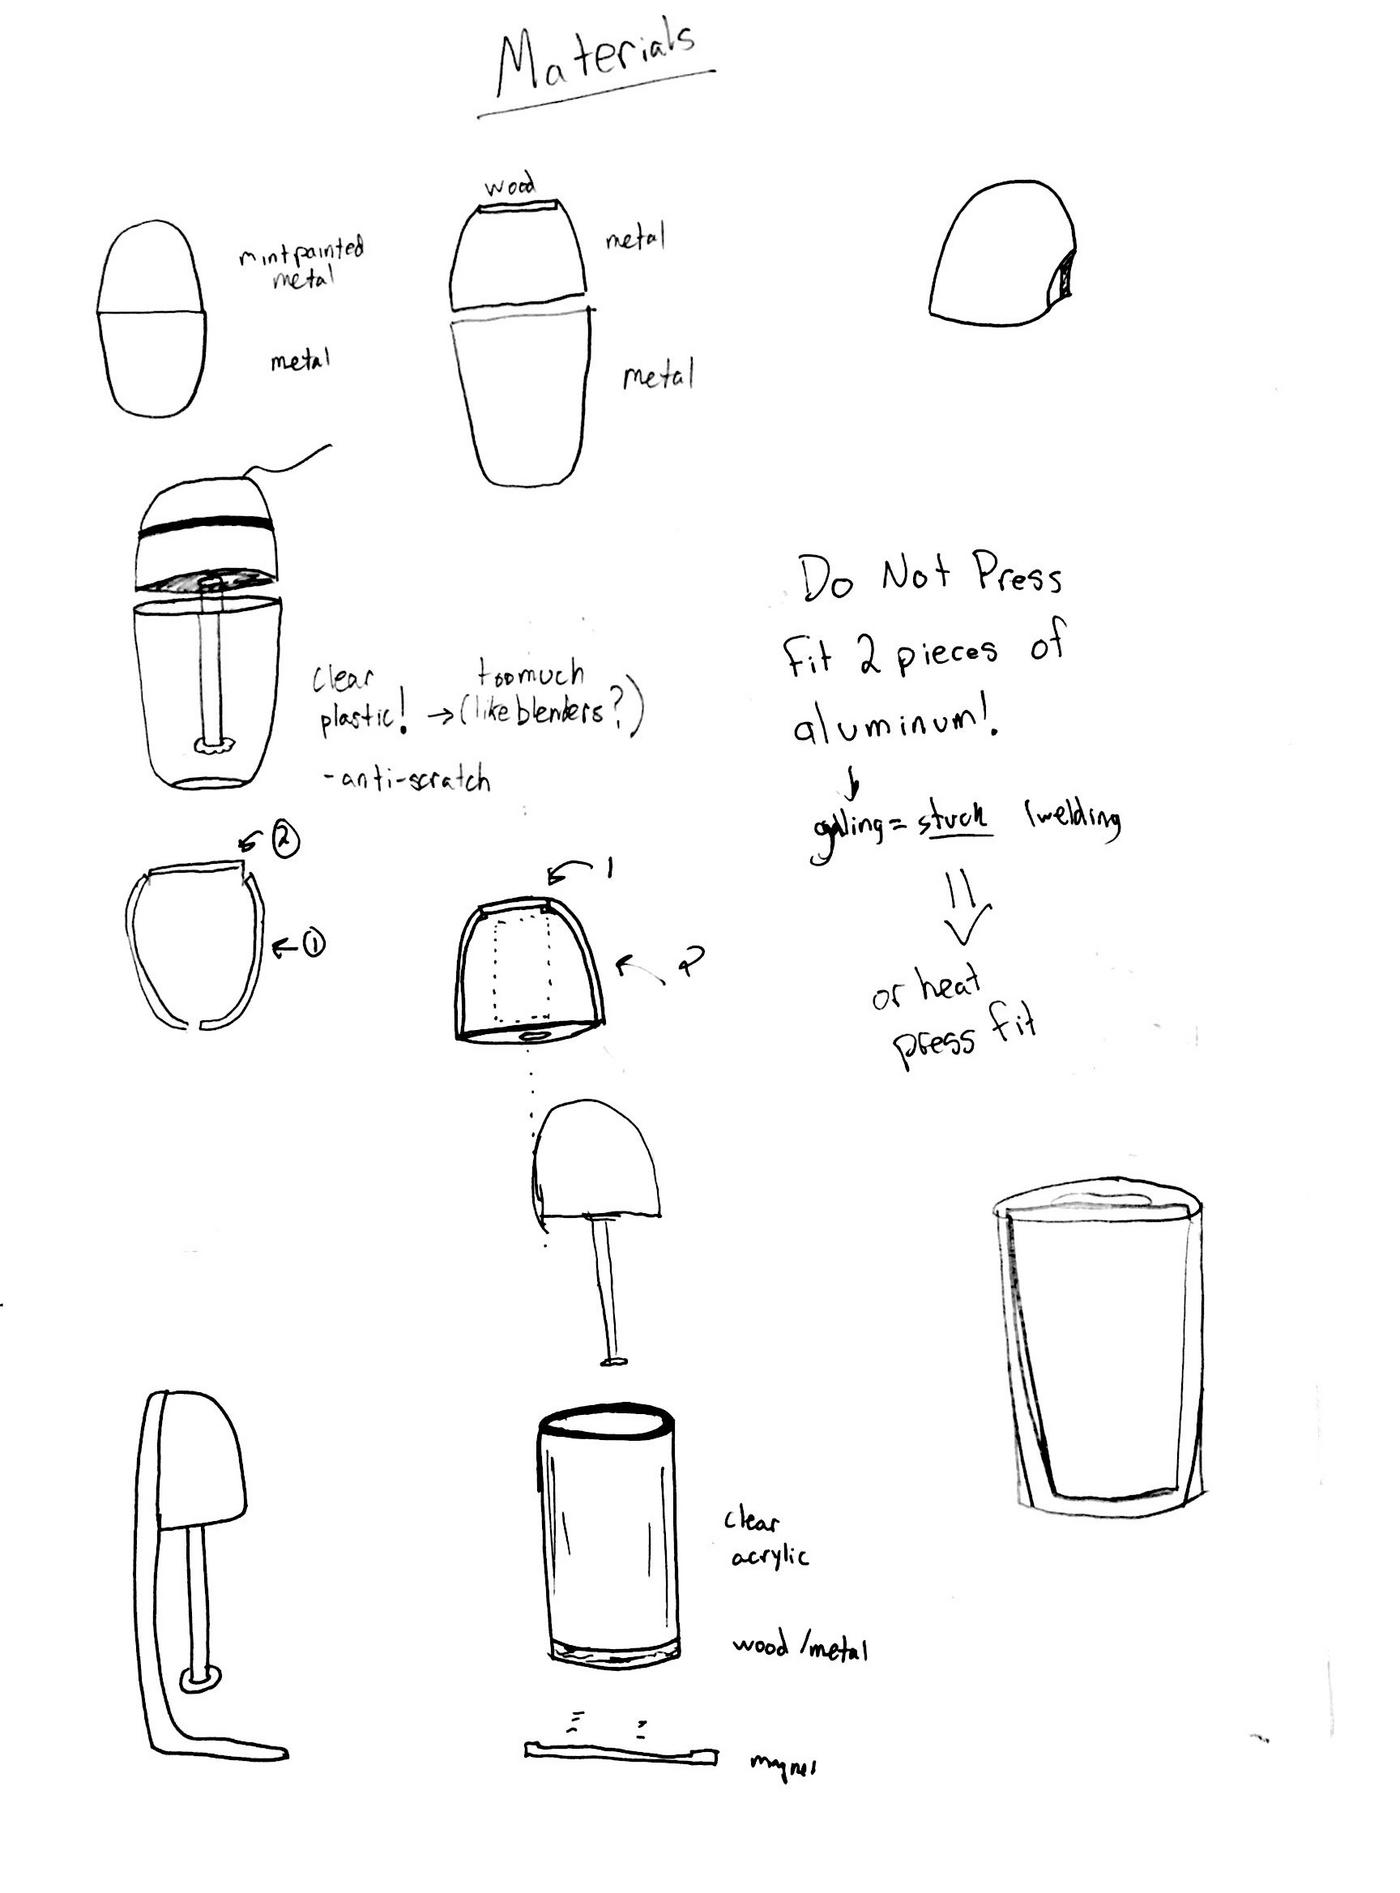 Materials
mint painted
metal
metal
wood
metal
metal
clear
plastic! → (like blenders?)
too much
-anti-scratch
Do Not Press
Fit 2 pieces of
aluminum!
galling = stuck (welding
or heat
press fit
2
1
1
clear
acrylic
wood/metal